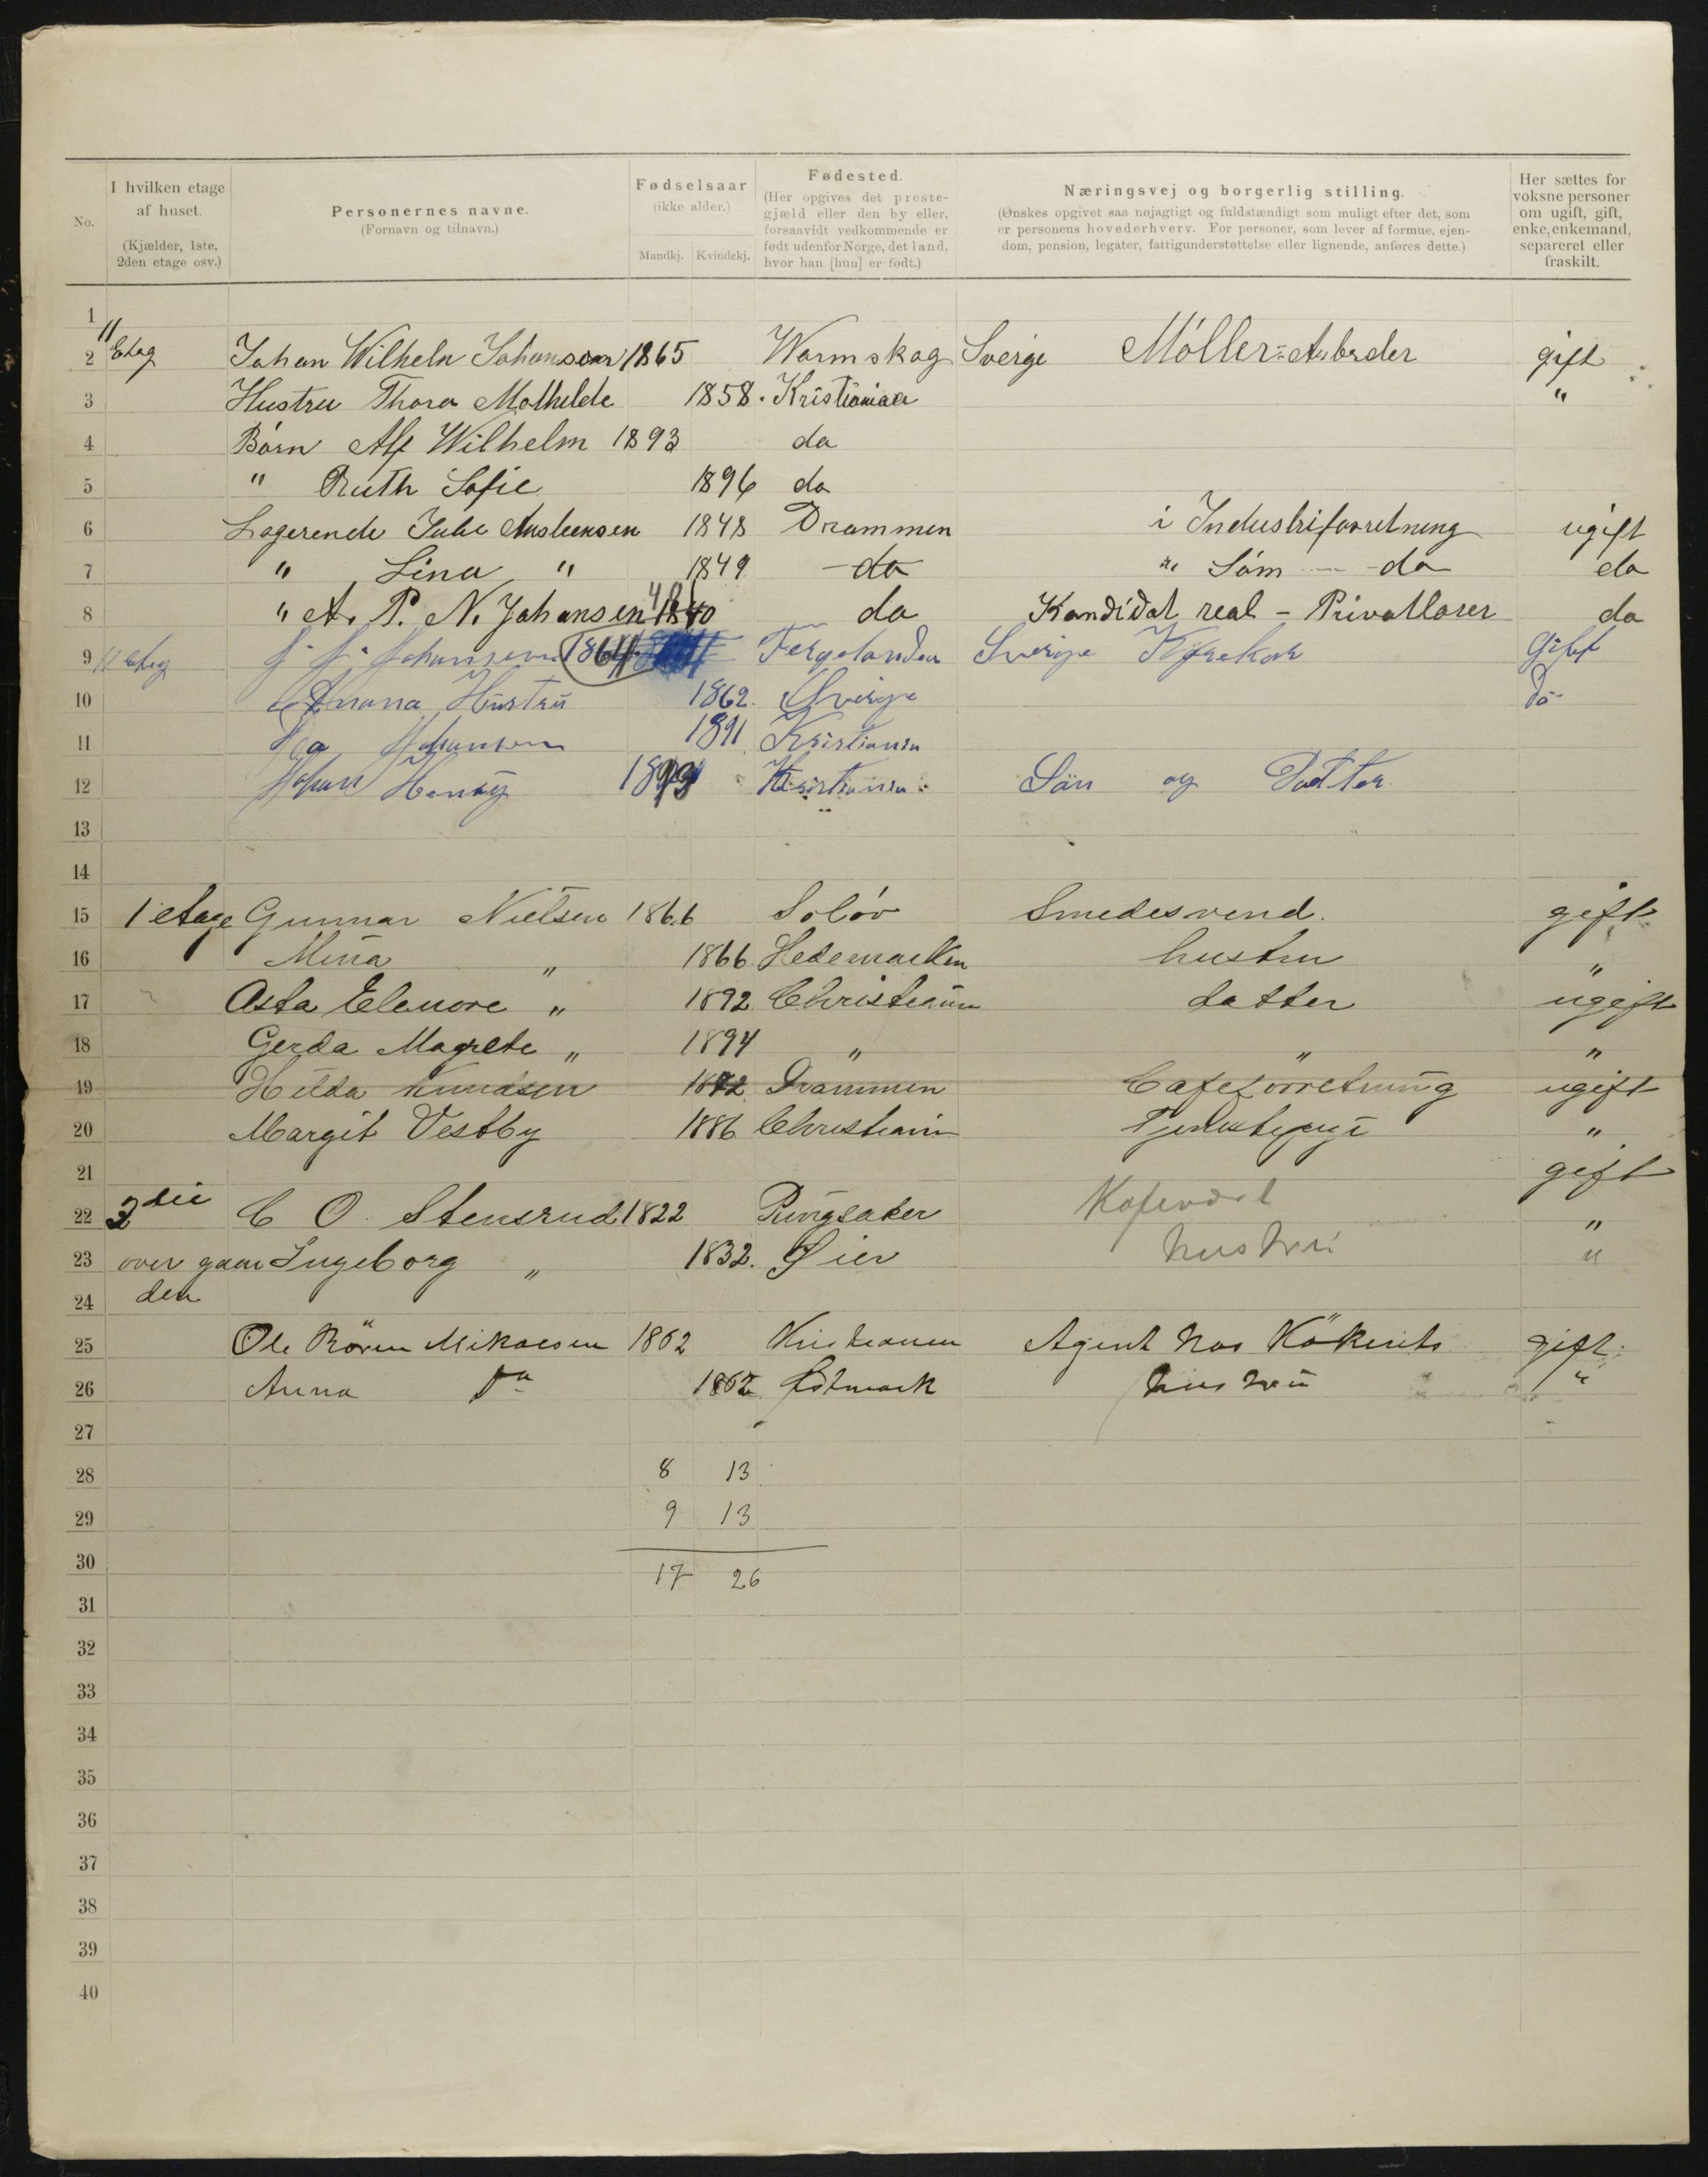 No.
I hvilken etage af huset. (Kjælder, 1ste, 2den etage osv.)
Personernes navne. (Fornavn og tilnavn.)
Fødselsaar (ikke alder.) Mandkj. Kvindekj.
Fødested. (Her opgives det prestegjæld eller den by eller, forsaavidt vedkommende er født udenfor Norge, det land, hvor han [hun] er født.)
Næringsvej og borgerlig stilling. (Ønskes opgivet saa nøjagtigt og fuldstændigt som muligt efter det, som er personens hovederhverv. For personer, som lever af formue, ejendom, pension, legater, fattigunderstøttelse eller lignende, anføres dette.)
Her sættes for voksne personer om ugift, gift, enke, enkemand, separeret eller fraskilt.
1
2 11 Etag Johan Wilhelm Johansson 1865 Warmskog Sverige Møller-Arbeder gift
3 Hustru Thora Mathilde 1858. Kristiania "
4 Børn Alf Wilhelm 1893 do
5 " Ruth Sofie 1896 do
6 Logerende Julie 1848 Drammen i Industriforretning ugift
7 " Lina " 1849 do " Søm do do
8 " A. P. N. Johansen 1840 do Kandidat real - Privatlærer do
9 11 etag J. J. Johansen 1864 Sverige Gift
10 Anna Hustru 1862. Sverige Do
11 Johansen 1891 Kristiania
12 Johan Henry 1893 Kristiania Sön og Datter
13
14
15 1 etage Gunnar Nielsen 1866 Soløv Smedesvend. gift
16 Mina " 1866 Hedemarken hustru "
17 Asta Elenore " 1892 Christiania datter ugift
18 Gerda Magrete " 1894 " " "
19 Hilda Knudsen 1872 Drammen Cafeforretning ugift
20 Margit Vestby 1886 Christiania Tjenestepige "
21 gift
22 2die C O. Stensrud 1822 Ringsaker "
23 over gaar Ingeborg " 1832. Øier hustru "
24 den
25 Ole Mikaelsen 1862 Kristiania Agent hos gift
26 Anna Do 1862 hustru "
27
28 8 13
29 9 13
30 17 26
31
32
33
34
35
36
37
38
39
40